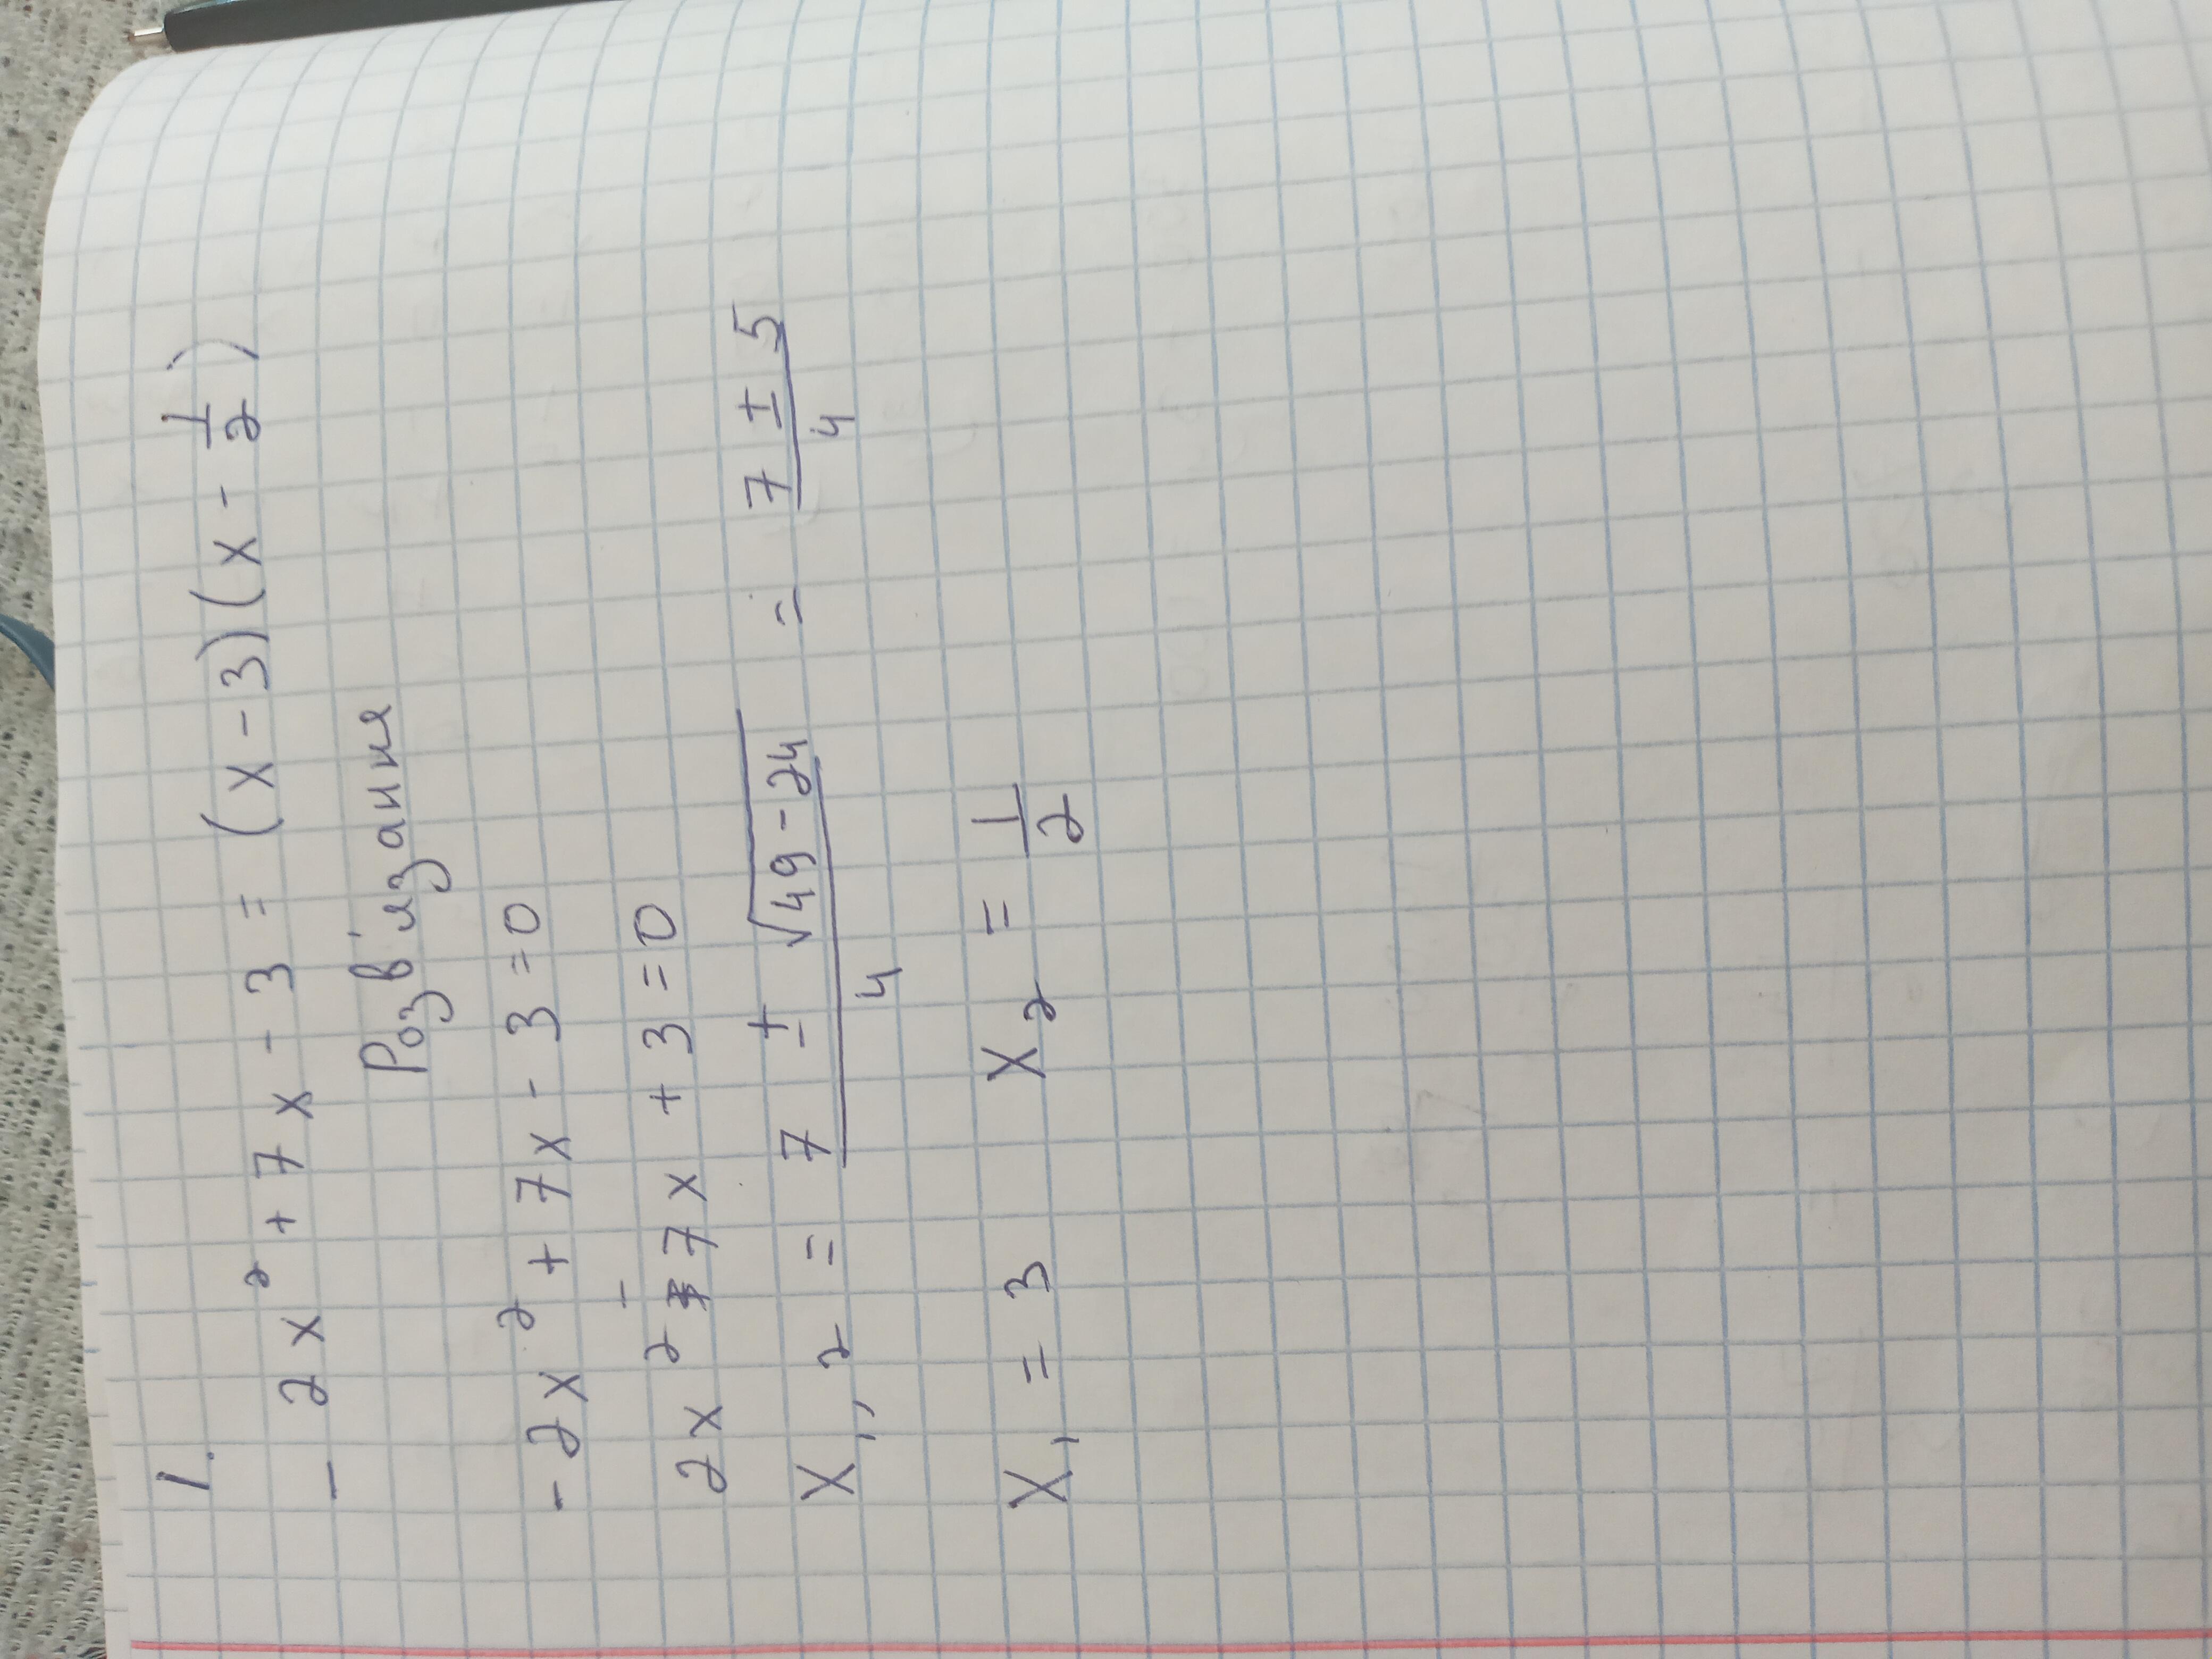 1.
- 2x² + 7x - 3 = (x - 3)(x - 1/2)
Розв'язання
- 2x² + 7x - 3 = 0
2x² - 7x + 3 = 0
x₁,₂ = (7 ± √(49 - 24))/4 = (7 ± 5)/4
x₁ = 3 x₂ = 1/2